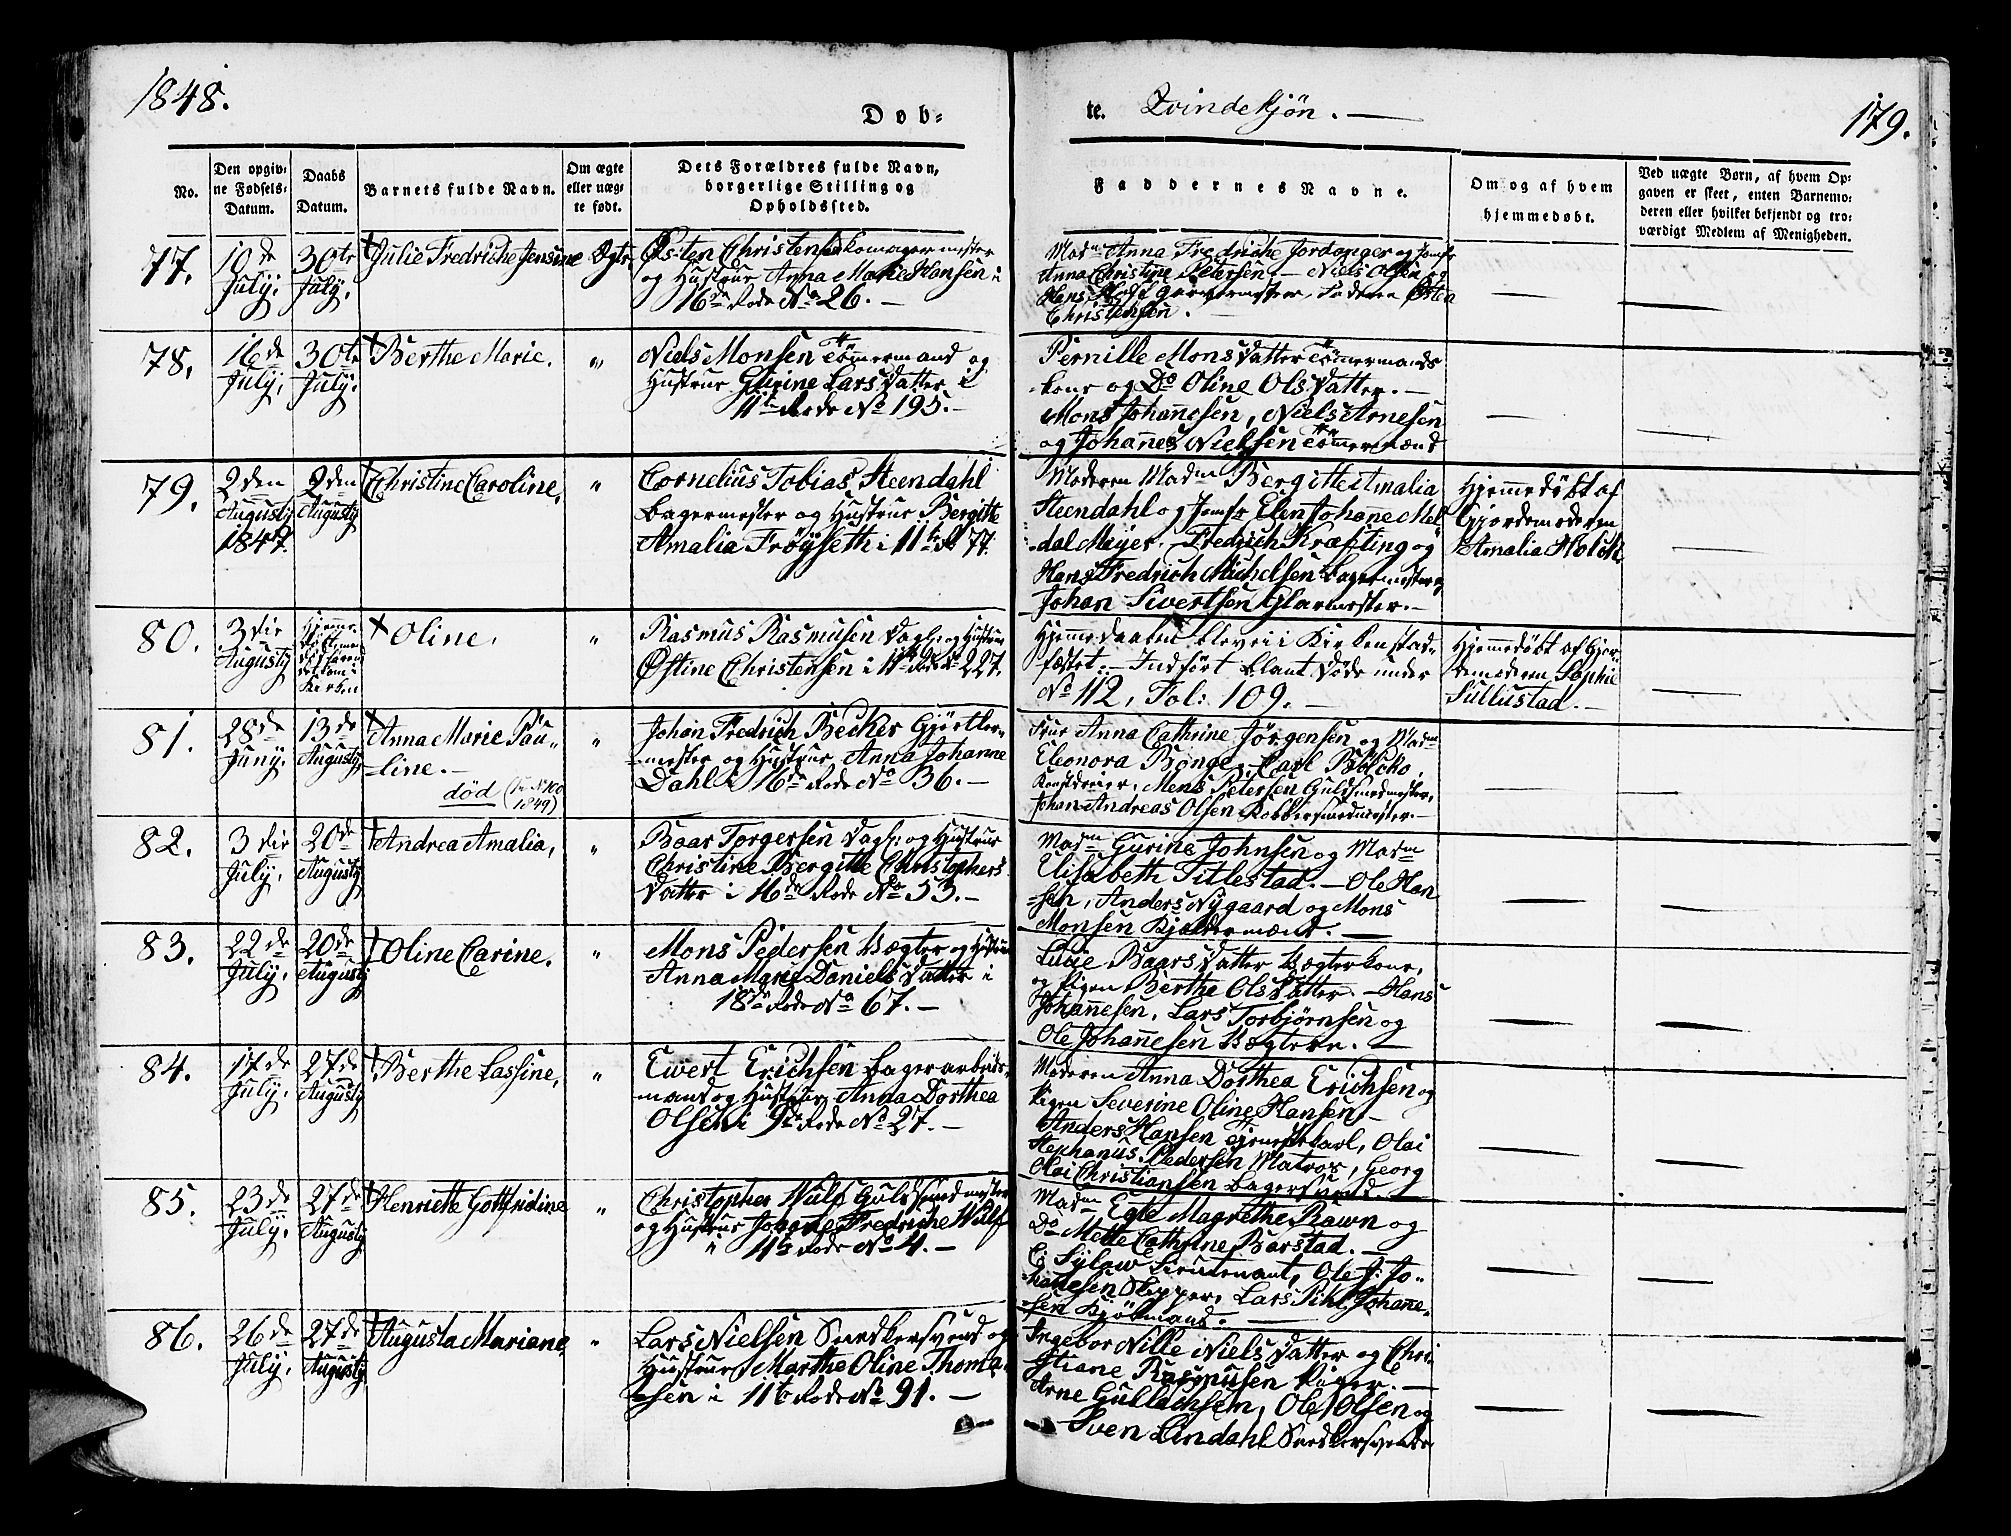 1848.
Døb-
te. Qvindekjøn. —
179.
No.
Den opgiv-
ne Fødsels-
Datum.
Daabs
Datum.
Barnets fulde Navn.
Om ægte
eller uæg-
te født.
Dets Forældres fulde Navn,
borgerlige Stilling og
Opholdssted.
Faddernes Navne.
Om og af hvem
hjemmedøbt.
Ved uægte Børn, af hvem Op-
gaven er skeet, enten Barnemo-
deren eller hvilket bekjendt og tro-
værdigt Medlem af Menigheden.
77.
10de
July.
30te
July.
Julie Fredriche Jensine
Ægte
Østen Christensen
og Hustrue Anna Marie Hansen i
16de Rode No 26. —
Madm Anna Fredriche Jordanger og Jomfr
Anna Christine Petersen — Niels Olsen og
Hans Garvermester, Faderen Østen
Christensen.
78.
16de
July.
30te
July.
Berthe Marie.
"
Niels Monsen Tömmermand og
Hustrue Gurine Lars Datter i
11te Rode No 195. —
Pernille Mons Datter Tömmermands
kone og Do Oline Ols Datter. —
Mons Johannesen, Niels Arnesen
og Johannes Nielsen Tömmermænd
79.
2den
Augusty
1847.
9den
Augusty
Christine Caroline,
"
Cornelius Tobias Steendahl
Bagermester og Hustrue Bergitte
Amalia Fröyseth i 11te R 77.
Moderen Madm Bergitte Amalia
Steendahl og Jomfr Elen Johane Mel-
dal Meyer. Fredrich Kræfting og
Hans Fredrich Michelsen Bagermestere,
Johan Sivertsen Glarmester. —
Hjemmedöbt af
Gjordemoderen
Amalia Holck
80.
3die
Augusty
Hjemme-
Kirken
Oline,
"
Rasmus Rasmusen Dagl: og Hustrue
Østine Christensen i 11te Rode No 227.
Hjemmedaaben blev ei i Kirken stad-
fæstet. — Indført blant Døde under
No 112, Fol: 109. —
Hjemmedöbt af Gjor-
demoderen Sophie
Sullustad. —
81.
28de
Juny.
13de
Augusty,
Anna Marie Pau-
line. —
død (No 100
1849)
"
Johan Fredrich Becker Gjørtler-
mester og Hustrue Anna Johanne
Dahl i 16de Rode No 36. —
Frue Anna Cathrine Jörgensen og Madm
Eleonora Bönge. Carl Bölcko,
Kunstdreier, Mons Petersen Guldsmedmester,
Johan Andreas Olsen Kobbersmedmester. —
82.
3die
July.
20de
Augusty
Andrea Amalia,
"
Baar Torgersen Dagl: og Hustrue
Christine Bergitte Christophers
Datter i 16de Rode No 53. —
Madm Gurine Johnsen og Madm
Elisabeth Titlestad. — Ole Han-
sen, Anders Nygaard og Mons
Monsen Kjeldermænd. —
83.
22de
July.
20de
Augusty
Oline Carine.
"
Mons Pedersen Vægter og Hustrue
Anna Marie Daniels Datter i
18de Rode No 67. —
Lucie Baars Datter Vægterkone,
og Pigen Berthe Ols Datter — Hans
Johannesen, Lars Torbjørnsen og
Ole Johannesen Vægtere. —
84.
17de
July.
27de
Augusty
Berthe Lassine,
"
Ewert Erichsen Bagerarbeids-
mand og Hustrue Anna Dorthea
Olsen i 9de Rode No 27. —
Moderen Anna Dorthea Erichsen og
Pigen Severine Oline Hansen, —
Anders Hansen Tjenestekarl, Olai
Stephanus Pedersen Matros, Georg
Olai Christiansen Bagersvend. —
85.
23de
July.
27de
Augusty
Henriette Gottfridine
"
Christopher Wulf Guldsmedmester
og Hustrue Johanne Fredriche Wulf
i 11te Rode No 4. —
Madm Egle Magrethe Rawn og
Do Mette Cathrine Barstad. —
C: Sylow Lieutenant, Ole J: Jo-
hannesen Skipper, Lars Pihl Johanne-
sen Kjöbmand. —
86.
26de
July.
27de
Augusty
Augusta Mariane,
"
Lars Nielsen Snedkersvend og
Hustrue Marthe Oline Thoma-
sen i 11te Rode No 91. —
Ingebor Nille Niels Datter og Chri-
stiane Rasmusen Piger. —
Arne Gullachsen, Ole Olsen og
Sven Lindahl Snedkersvende